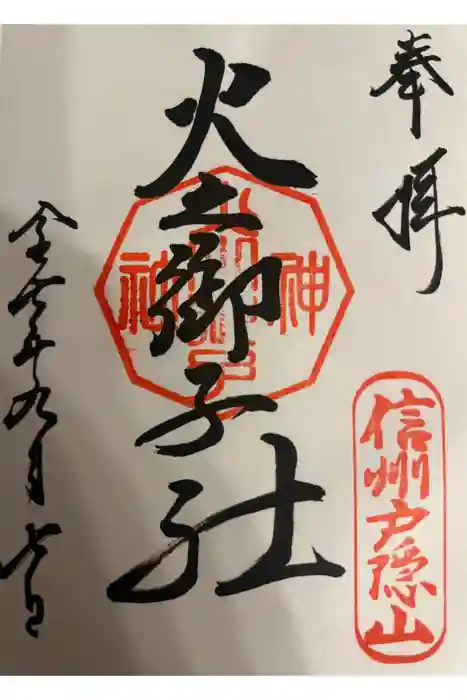 奉拝
信州戸隠山
火之御子社
令和七年九月七日